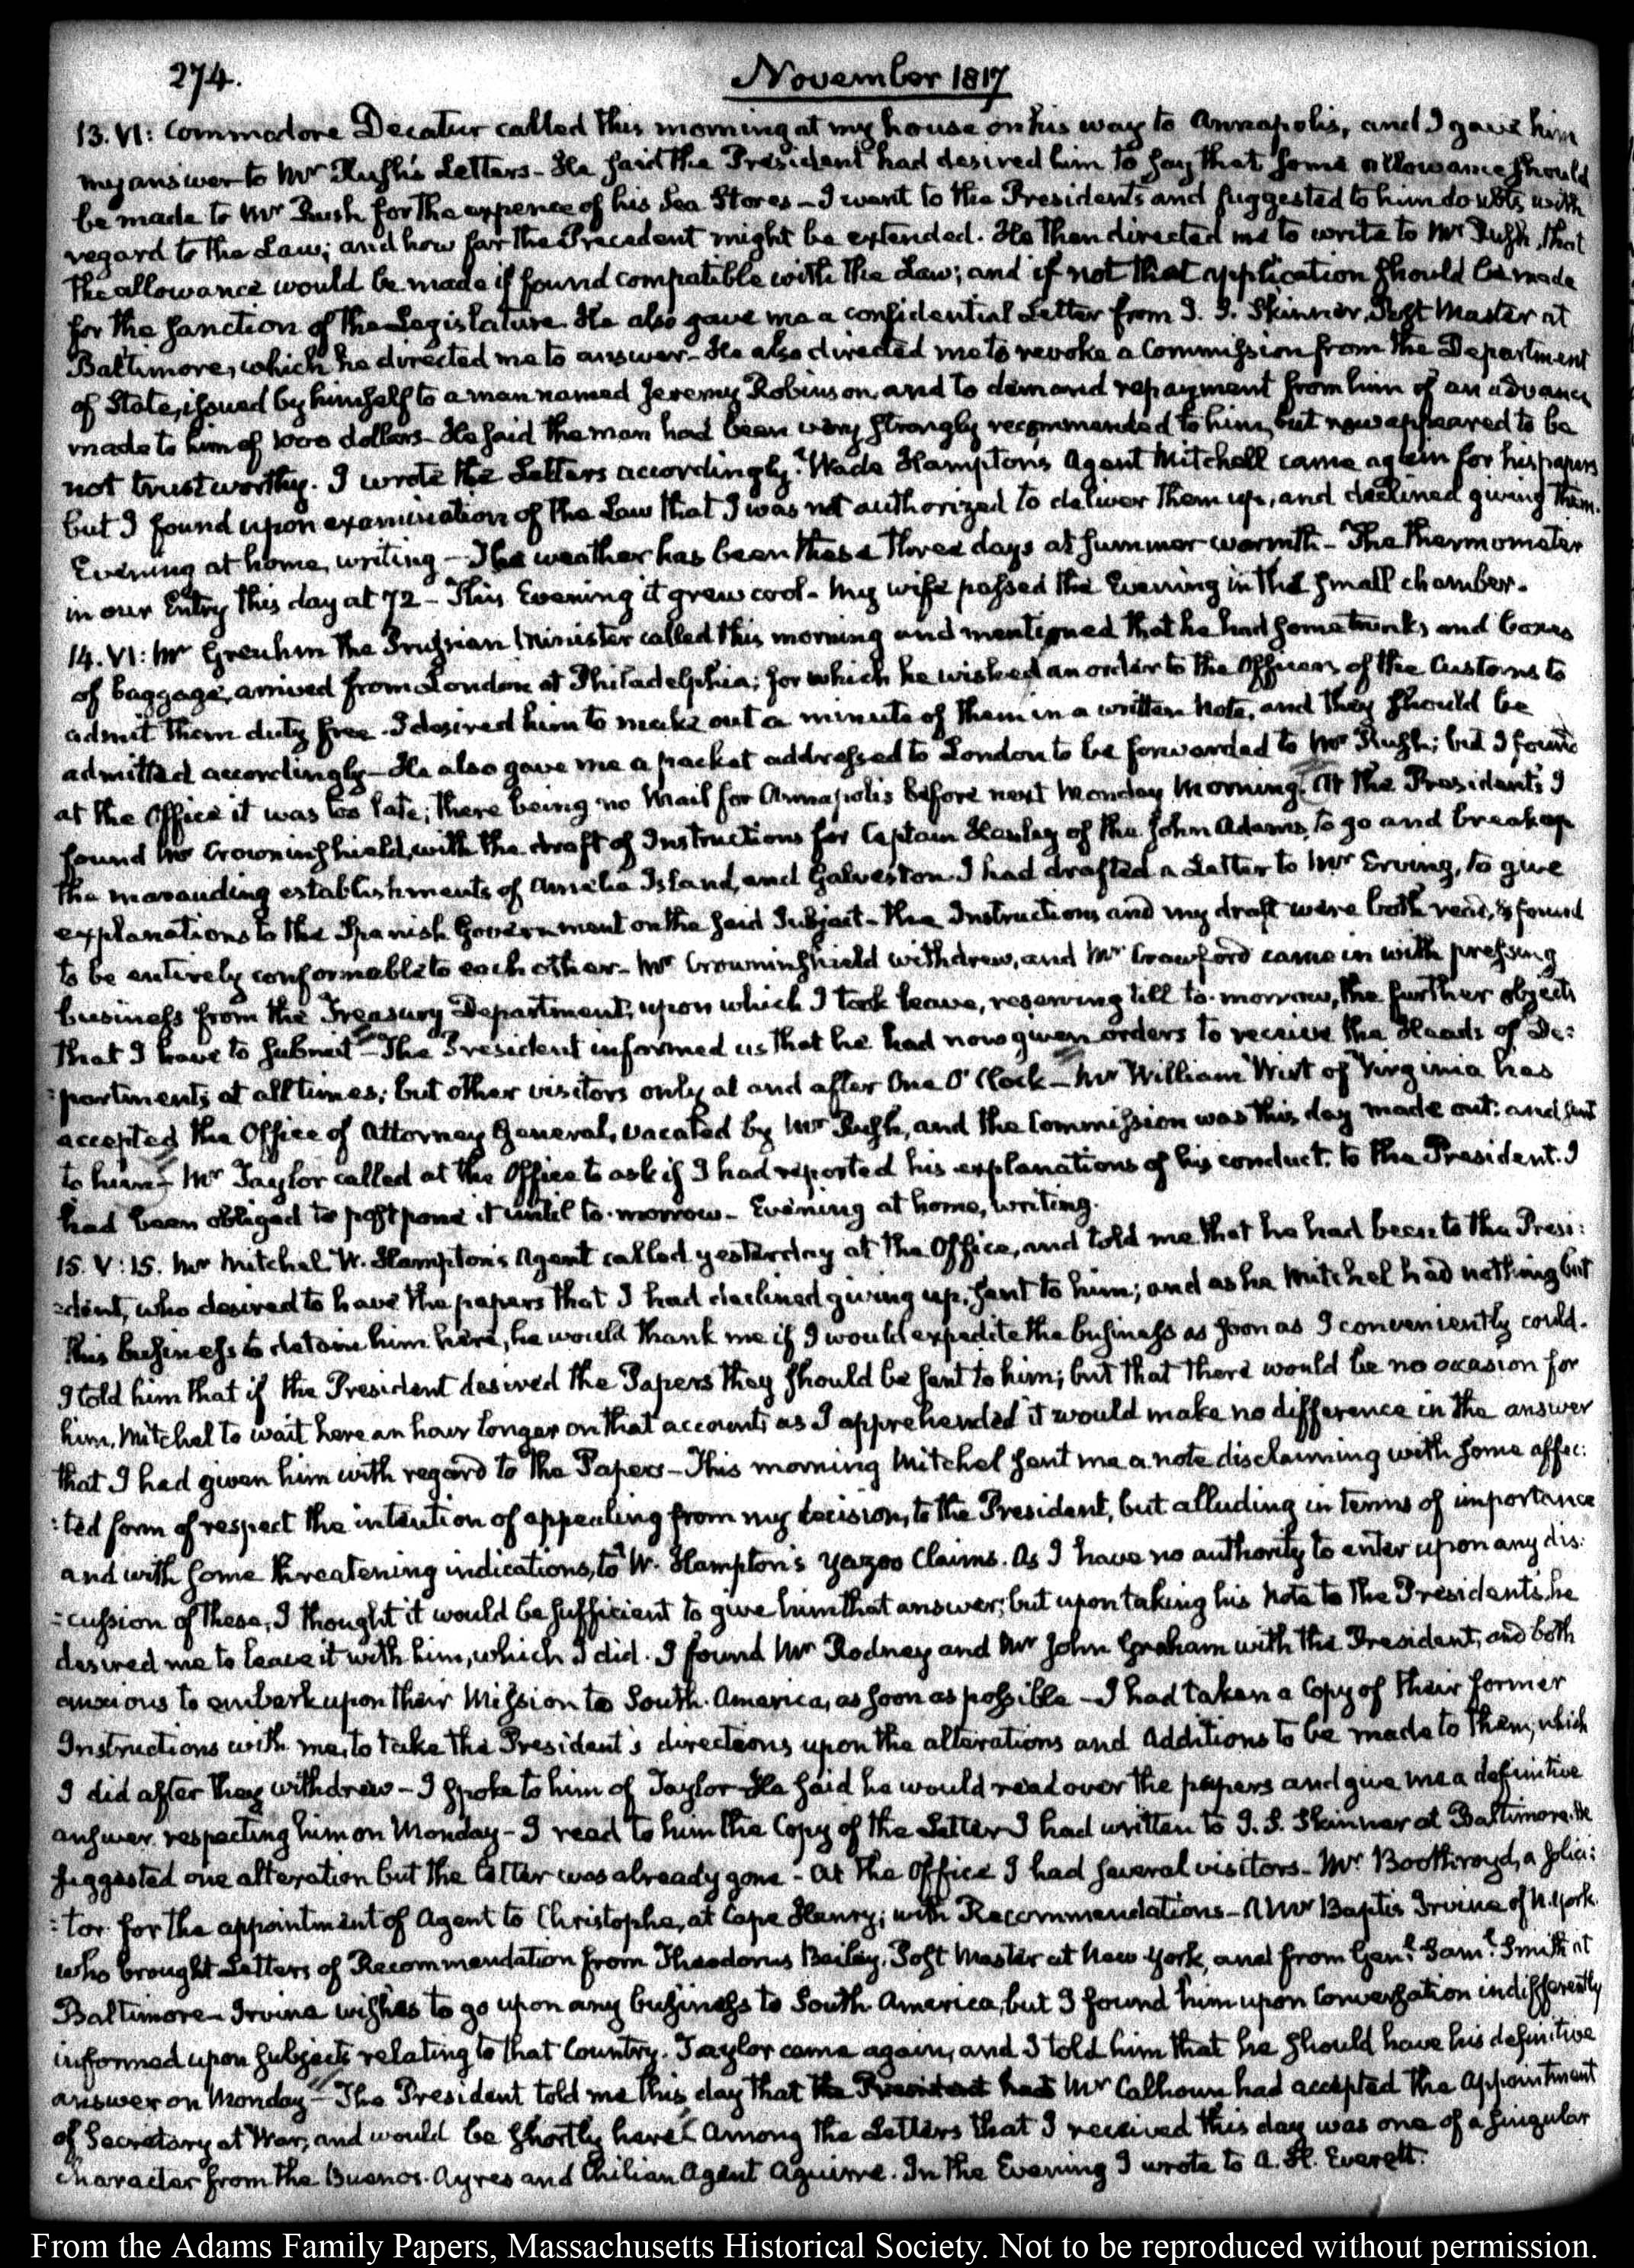 274.
November 1817
13. VI: Commodore Decatur called this morning at my house on his way to Annapolis, and I gave him
my answer to Mr Rush's Letters - He said the President had desired him to say that some allowance should
be made to Mr Rush for the expence of his Sea Stores - I went to the Presidents and suggested to him doubts with
regard to the Law; and how far the Precedent might be extended. He then directed me to write to Mr Rush, that
the allowance would be made if found compatible with the Law; and if not that application should be made
for the sanction of the Legislature. He also gave me a confidential Letter from J. S. Skinner, Post Master at
Baltimore, which he directed me to answer - He also directed me to revoke a Commission from the Department
of State, issued by himself to a man named Jeremy Robinson, and to demand repayment from him of an advance
made to him of 1000 dollars - He said the man had been very strongly recommended to him, but now appeared to be
not trustworthy. I wrote the Letters accordingly. Wade Hampton's Agent Mitchell came again for his papers
but I found upon examination of the Law that I was not authorized to deliver them up, and declined giving them.
Evening at home, writing - The weather has been these three days at summer warmth - The Thermometer
in our Entry this day at 72 - This Evening it grew cool - My wife passed the Evening in the small chamber.
14. VI: Mr Greuhm the Prussian Minister called this morning and mentioned that he had some trunks and boxes
of baggage, arrived from London at Philadelphia; for which he wished an order to the Officers of the Customs to
admit them duty free. I desired him to make out a minute of them in a written Note, and they should be
admitted accordingly - He also gave me a packet addressed to London to be forwarded to Mr Rush; but I found
at the Office it was too late; there being no Mail for Annapolis before next Monday Morning. At the President's I
found Mr Crowninshield, with the draft of Instructions for Captain Henley of the John Adams, to go and break up
the marauding establishments of Amelia Island, and Galveston. I had drafted a Letter to Mr Erving, to give
explanations to the Spanish Government on the said Subject - The Instructions and my draft were both read, & found
to be entirely conformable to each other - Mr Crowninshield withdrew, and Mr Crawford came in with pressing
business from the Treasury Department; upon which I took leave, reserving till to-morrow, the further objects
that I have to submit - The President informed us that he had now given orders to receive the Heads of De:
:partments at all times; but other visitors only at and after One O'Clock - Mr William Wirt of Virginia has
accepted the Office of Attorney General, vacated by Mr Rush, and the Commission was this day made out: and sent
to him - Mr Taylor called at the Office to ask if I had reported his explanations of his conduct to the President. I
had been obliged to postpone it until to-morrow - Evening at home, writing.
15. V:15. Mr Mitchel W. Hampton's Agent called yesterday at the Office, and told me that he had been to the Presi:
:dent, who desired to have the papers that I had declined giving up, sent to him; and as he Mitchel had nothing but
this business to detain him here, he would thank me if I would expedite the business as soon as I conveniently could.
I told him that if the President desired the Papers they should be sent to him; but that there would be no occasion for
him, Mitchel to wait here an hour longer on that account, as I apprehended it would make no difference in the answer
that I had given him with regard to the Papers - This morning Mitchel sent me a note disclaiming with some affec:
:ted form of respect the intention of appealing from my decision, to the President, but alluding in terms of importance
and with some threatening indications, to W. Hampton's Yazoo Claims. As I have no authority to enter upon any dis:
:cussion of these, I thought it would be sufficient to give him that answer; but upon taking his Note to the President's, he
desired me to leave it with him, which I did. I found Mr Rodney and Mr John Graham with the President; and both
anxious to embark upon their Mission to South-America, as soon as possible - I had taken a Copy of their former
Instructions with me, to take the President's directions upon the alterations and additions to be made to them; which
I did after they withdrew - I spoke to him of Taylor - He said he would read over the papers and give me a definitive
answer respecting him on Monday - I read to him the Copy of the Letter I had written to J. S. Skinner at Baltimore. He
suggested one alteration but the letter was already gone - At the Office I had several visitors - Mr Boothroyd, a solici:
:tor for the appointment of Agent to Christophe, at Cape Henry; with Recommendations - A Mr Baptis Irvine of N. York.
who brought Letters of Recommendation from Theodorus Bailey, Post Master at New York, and from Genl. Saml. Smith at
Baltimore - Irvine wishes to go upon any business to South America, but I found him upon Conversation indifferently
informed upon subjects relating to that Country. Taylor came again, and I told him that he should have his definitive
answer on Monday - The President told me this day that the President had Mr Calhoun had accepted the Appointment
of Secretary at War, and would be shortly here. Among the Letters that I received this day was one of a singular
character from the Buenos-Ayres and Chilian Agent Aguirre. In the Evening I wrote to A. H. Everett.
From the Adams Family Papers, Massachusetts Historical Society. Not to be reproduced without permission.